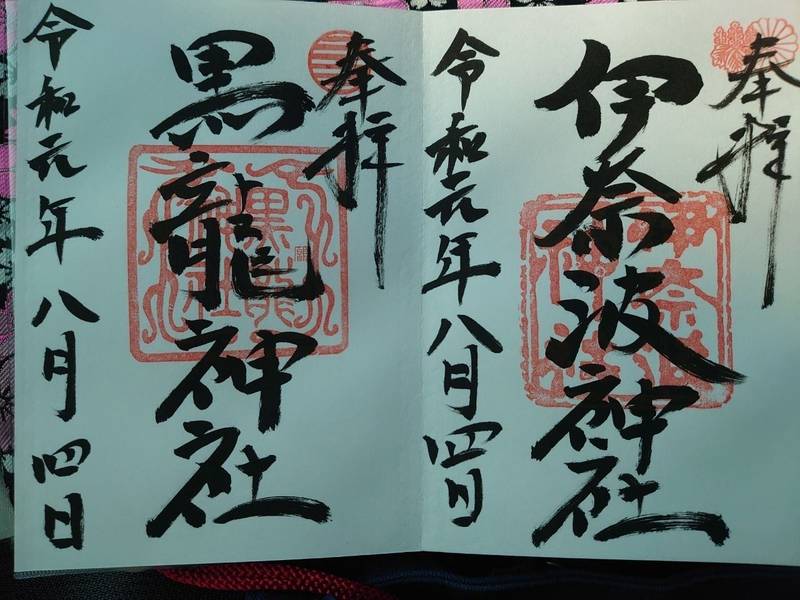 奉拝
伊奈波神社
令和元年八月四日
奉拝
黒龍神社
令和元年八月四日